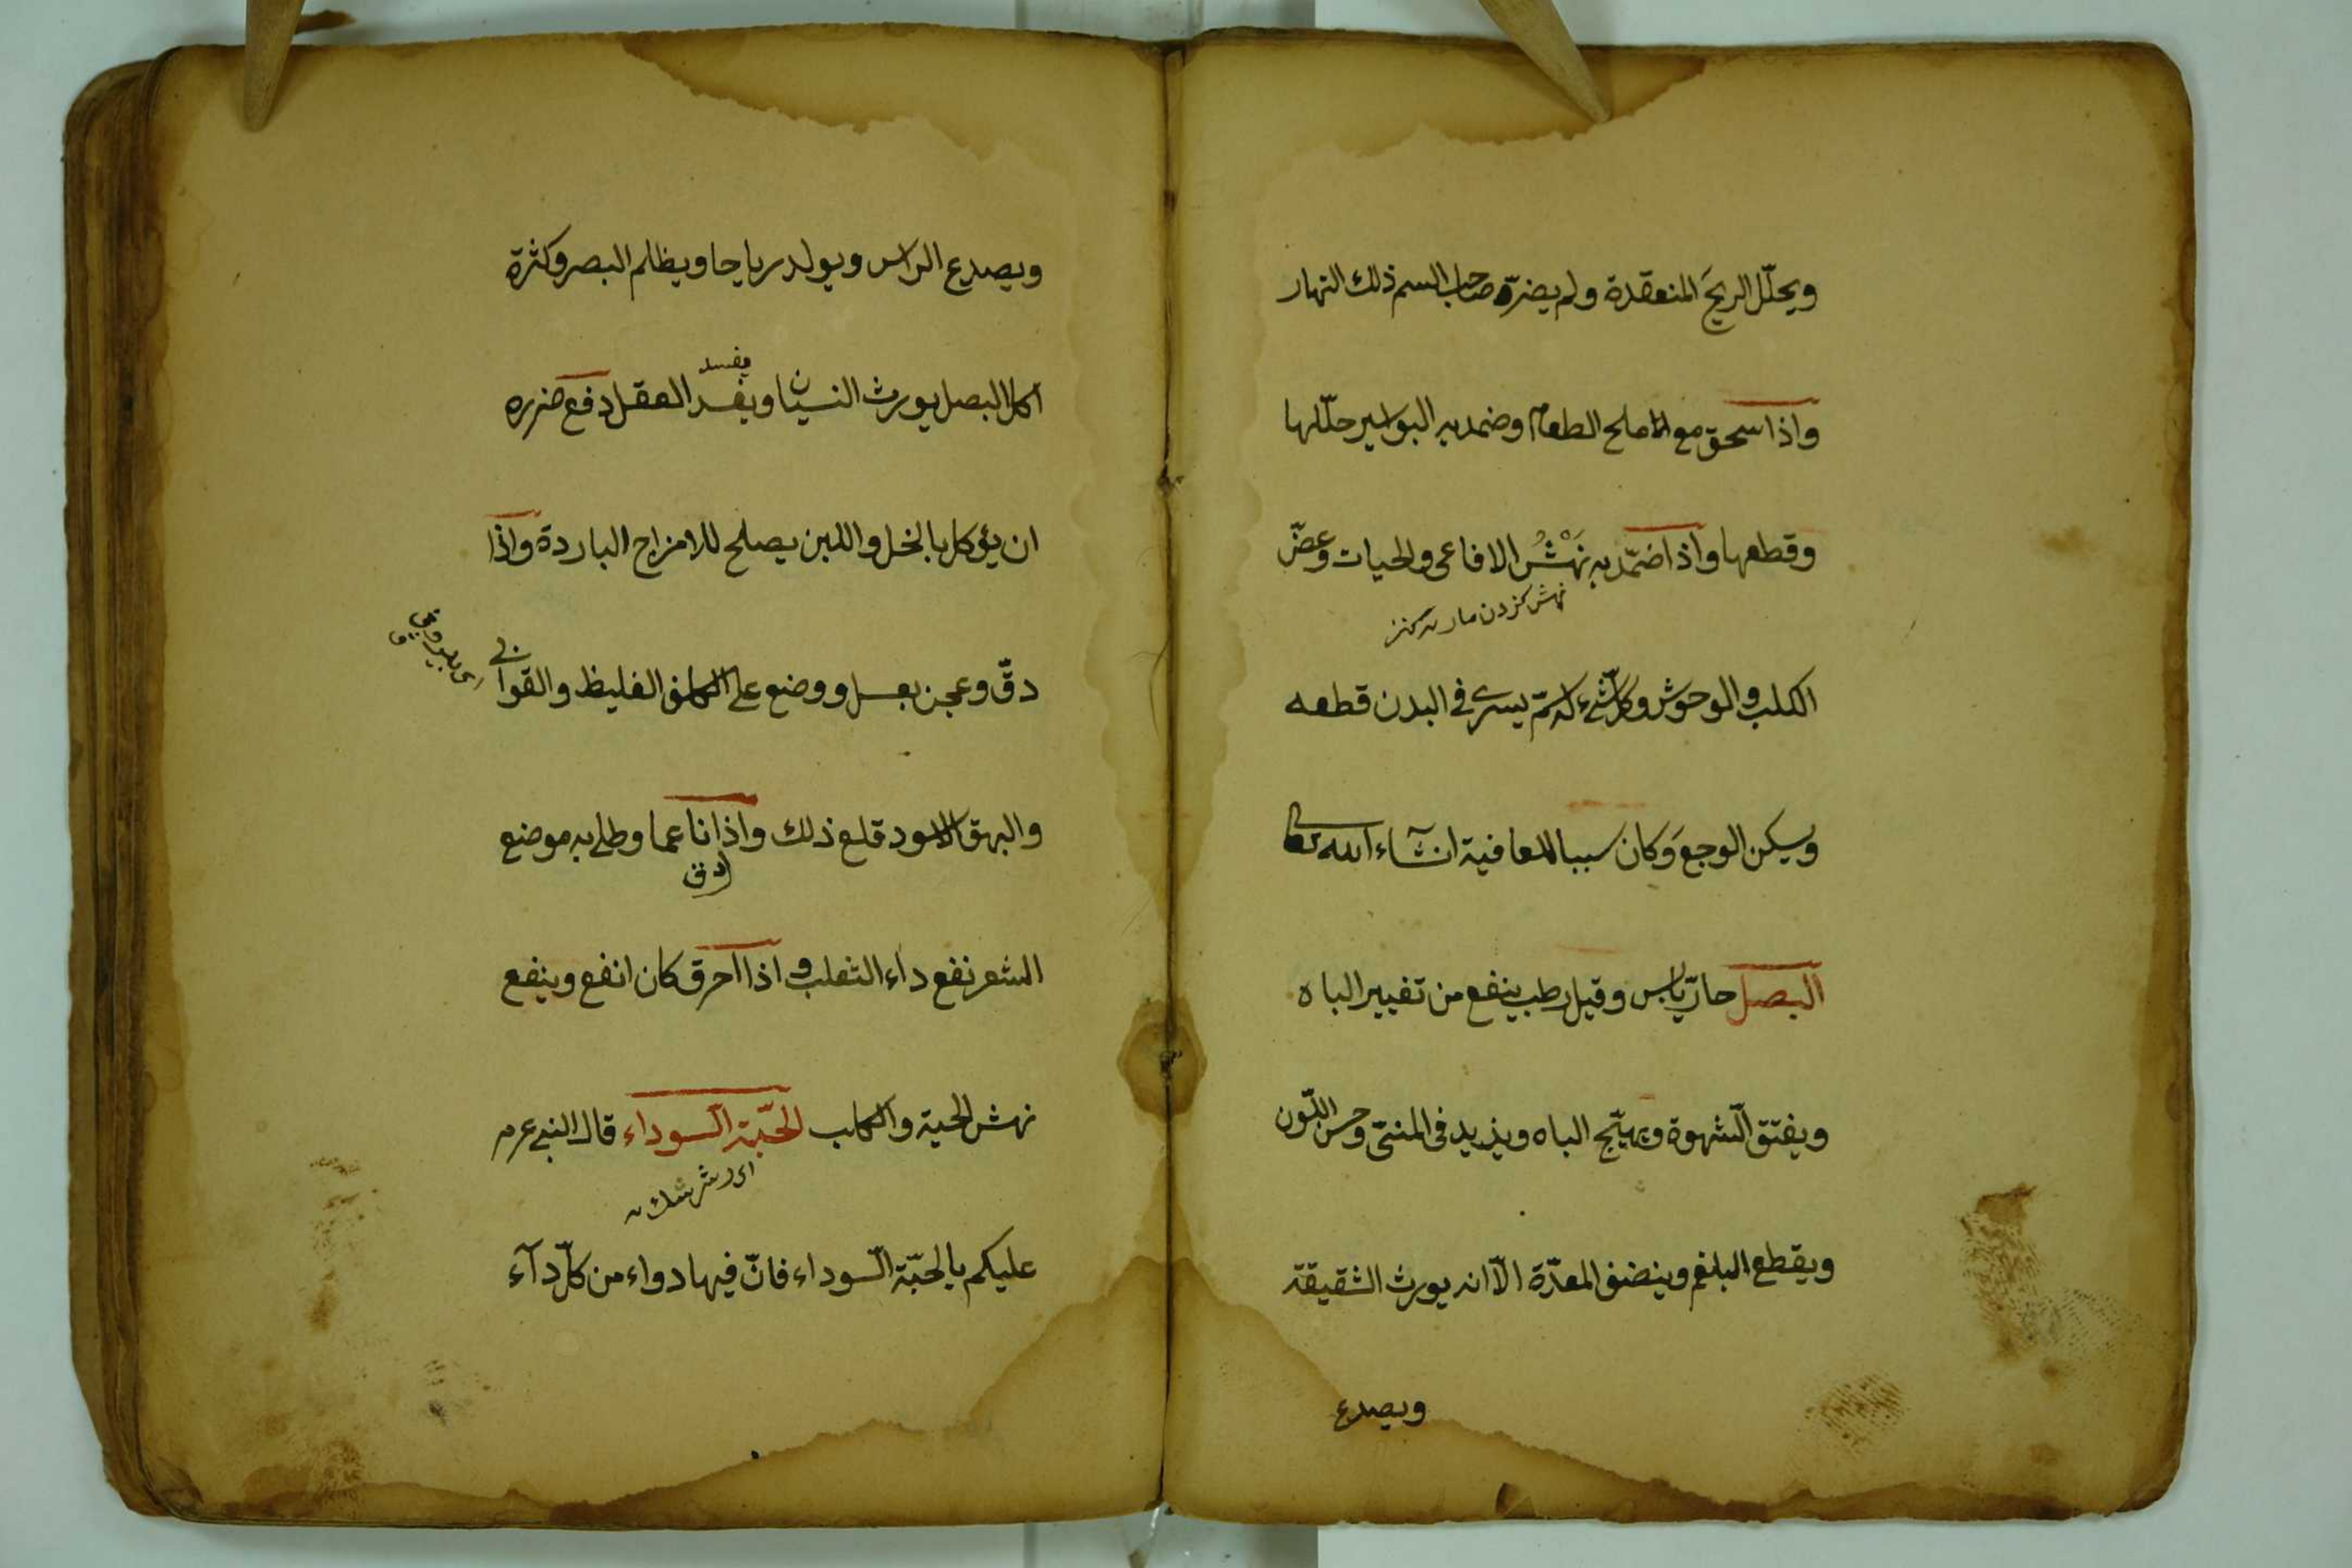 ويحلّل الريحَ المنعقدة ولم يضرّه صاحب السم ذلك النهار
واذا سحق مع الملح الطعام وضمد به البواسير حلّلها
وقطعها واذا ضمّد به نَهْشُ الافاعى والحيات وعضّ
نهش كزدن مار
الكلب والوحوش وكلّ شئ له سمّ يسرى فى البدن قطعه
ويسكن الوجعَ وكان سببا للعافية انشآء الله تعالى
البصل حارّ يابس وقيل رطب ينفع من تغيير المياه
ويفتق الشّهوة ويهيّج الباه ويزيد فى المنىّ وحسن اللّون
ويقطع البلغم وينضف المعدّة الّا انه يورث الشقيقة
ويصدع
ويصدع الراس ويولد رياحا ويظلم البصر وكثرة
يفسد
اكل البصل يورث النسيان ويفسد العقل دفع ضرره
ان يؤكل بالخل واللبن يصلح للامزاج الباردة واذا
دقّ وعجن بعسل ووضع على الكلف الغليظ والقوابى
والبهق الاسود قلع ذلك واذا ناعما وطلى به موضع
دق
الشعر نفع داء الثعلب واذا احرق كان انفع وينفع
نهش الحية والكلب الحَبّة السّوداء قال النبى عرم
عليكم بالحبّة السّوداء فانّ فيها دواء من كلّ دآء